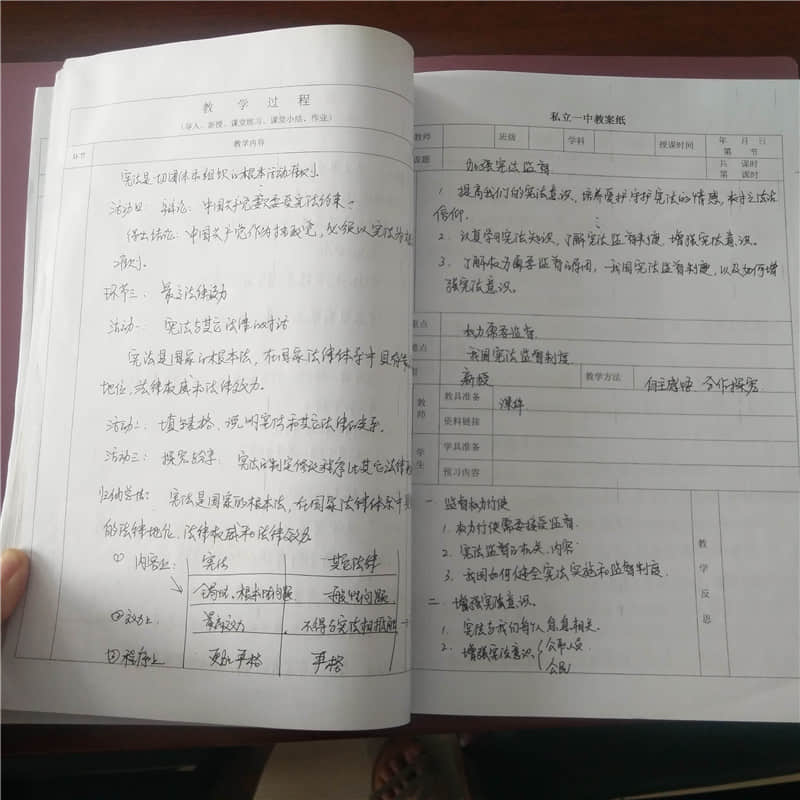 教 学 过 程
（导入、新授、课堂练习、课堂小结、作业）
环节
教学内容
宪法是一切团体和组织的根本活动准则。
活动四：辩论：中国共产党要不要受宪法约束。
得出结论：中国共产党作为执政党，必须以宪法为
准则。
环节三：最高法律效力
活动一：宪法与其它法律的对话
宪法是国家的根本法，在国家法律体系中具有
地位、法律权威和法律效力。
活动二：填写表格，说明宪法和其它法律的关系。
活动三：探究与分享：宪法的制定修改程序比其它法律
归纳总结：宪法是国家的根本法，在国家法律体系中
的法律地位、法律权威和法律效力
① 内容上： 宪法 其它法律
全局性、根本性问题 一般性问题
②效力上 最高效力 不得与宪法相抵触
③程序上 更加严格 严格
私立一中教案纸
教师 班级 学科 授课时间 年 月 日
第 节
课题 加强宪法监督 共 课时
第 课时
1. 提高我们的宪法意识，培养爱护守护宪法的情感，树立法治
信仰。
2. 认真学习宪法知识，了解宪法监督制度，增强宪法意识。
3. 了解权力需要监督的原因，我国宪法监督制度，以及如何增
强宪法意识。
重点 权力需要监督
难点 我国宪法监督制度
新授 教学方法 自主感悟 合作探究
教师 教具准备 课件
资料链接
学生 学具准备
预习内容
一. 监督权力行使
1. 权力行使需要接受监督.
2. 宪法监督的机关、内容
3. 我国如何健全宪法实施和监督制度.
二. 增强宪法意识。
1. 宪法与我们每个人息息相关.
2. 增强宪法意识{公职人员
公民
教学反思